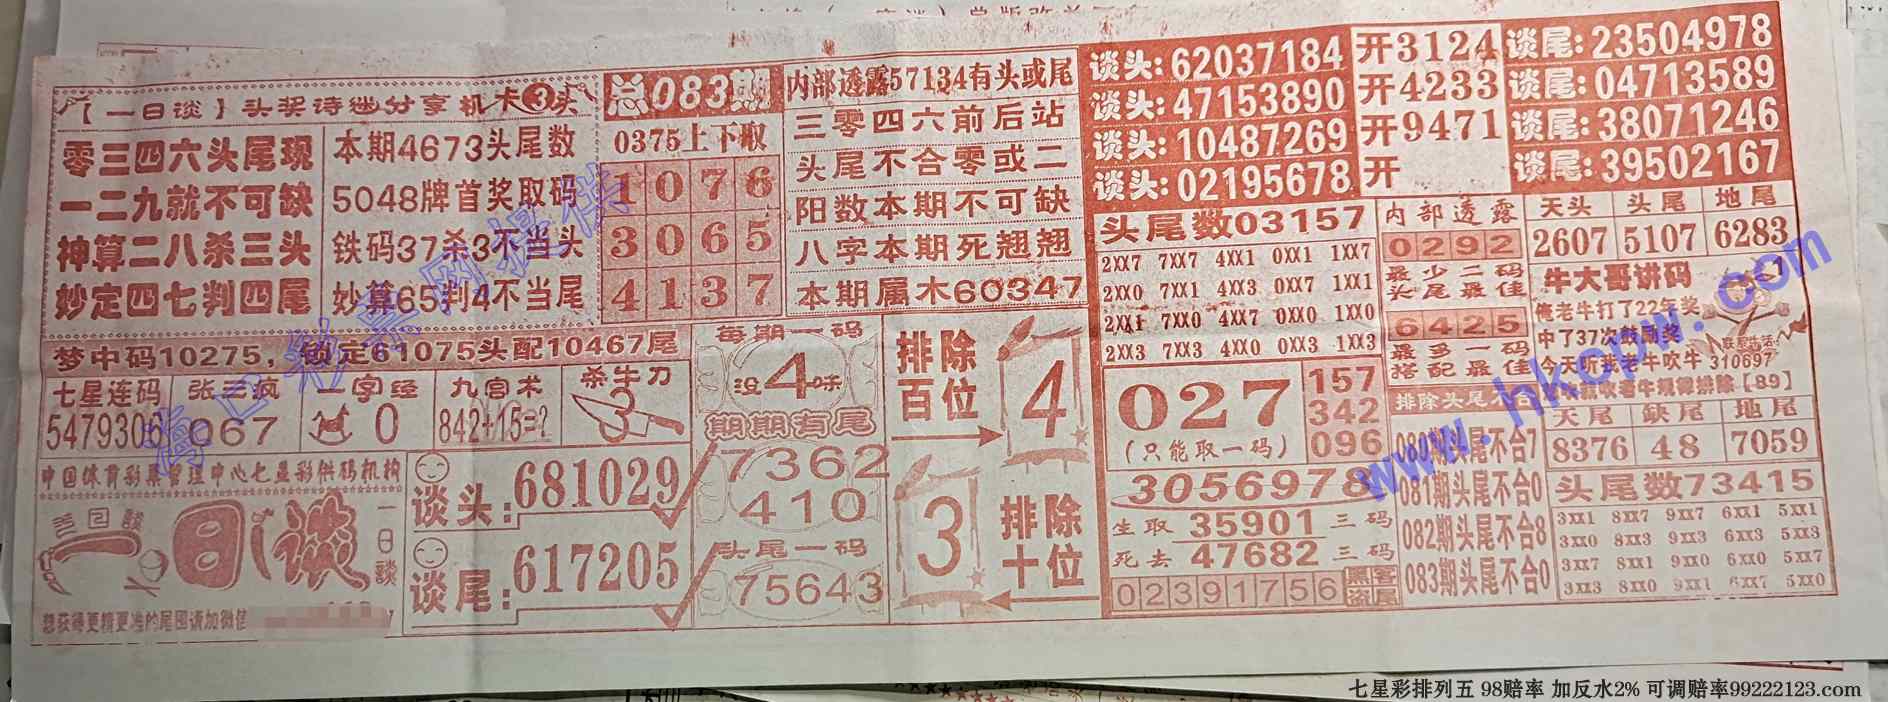 【一日谈】头奖诗谜分享机卡3头
零三四六头尾现
一二九就不可缺
神算二八杀三头
妙定四七判四尾
本期4673头尾数
5048牌首奖取码
铁码37杀3不当头
妙算65判4不当尾
总083期
0375上下取
1076
3065
4137
内部透露57134有头或尾
三零四六前后站
头尾不合零或二
阳数本期不可缺
八字本期死翘翘
本期属木60347
谈头:62037184 开3124 谈尾:23504978
谈头:47153890 开4233 谈尾:04713589
谈头:10487269 开9471 谈尾:38071246
谈头:02195678 开 谈尾:39502167
梦中码10275，锁定61075头配10467尾
七星连码
5479306
张三疯
067
一字经
0
九宫术
842+15=?
杀牛刀
3
中国体育彩票管理中心七星彩供码机构
一日谈
一日谈
一日谈
想获得更精更准的尾图请加微信
谈头:681029
谈尾:617205
每期一码
没4味
期期有尾
7362
410
头尾一码
75643
排除百位
4
3
排除十位
头尾数03157
2XX7 7XX7 4XX1 0XX1 1XX7
2XX0 7XX1 4XX3 0XX7 1XX1
2XX1 7XX0 4XX7 0XX0 1XX0
2XX3 7XX3 4XX0 0XX3 1XX3
027
(只能取一码)
157
342
096
3056978
生取35901三码
死去47682三码
02391756黑客盗尾
内部透露
0292
最少二码
头尾最佳
6425
最多一码
搭配最佳
排除头尾不合
080期头尾不合7
081期头尾不合0
082期头尾不合8
083期头尾不合0
天头 头尾 地尾
2607 5107 6283
牛大哥讲码
俺老牛打了22年奖
中了37次鼓励奖
今天听我老牛吹牛 310697
老牛规律排除【89】
天尾 缺尾 地尾
8376 48 7059
头尾数73415
3XX1 8XX7 9XX7 6XX1 5XX1
3XX0 8XX3 9XX3 6XX3 5XX3
3XX7 8XX1 9XX0 6XX0 5XX7
3XX3 8XX0 9XX1 6XX7 5XX0
海口彩票网提供
www.hkcw.com
七星彩排列五 98赔率 加反水2% 可调赔率99222123.com